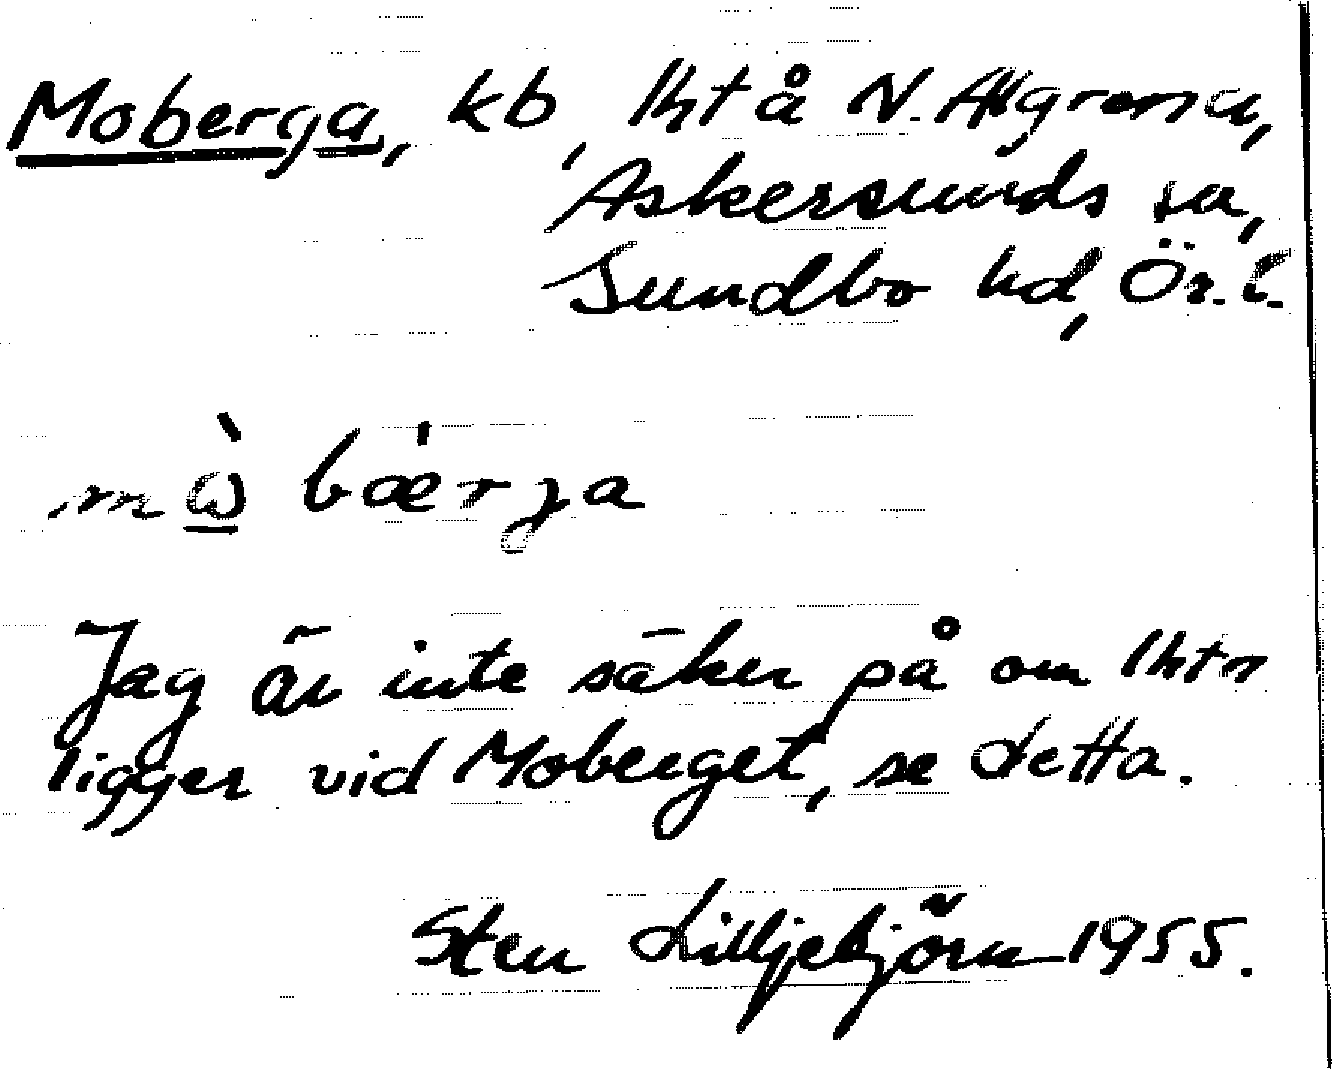 Moberga, kb, lht å N. Algrena,
Askersunds sn,
Sundbo hd, Ör. l.
mò̱ bǽrja
Jag är inte säker på om lhtn
ligger vid Moberget, se detta.
Sten Lilljebjörn 1955.